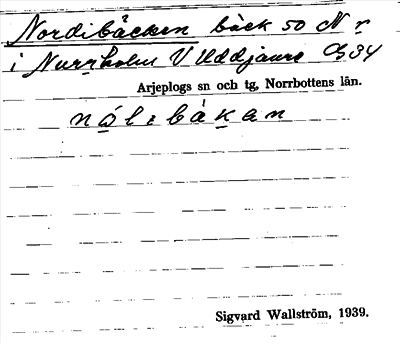 Nordibäcken bäck 50 N r
i Nurrholm V Uddjaure G34
Arjeplogs sn och tg, Norrbottens län.
Sigvard Wallström, 1939.